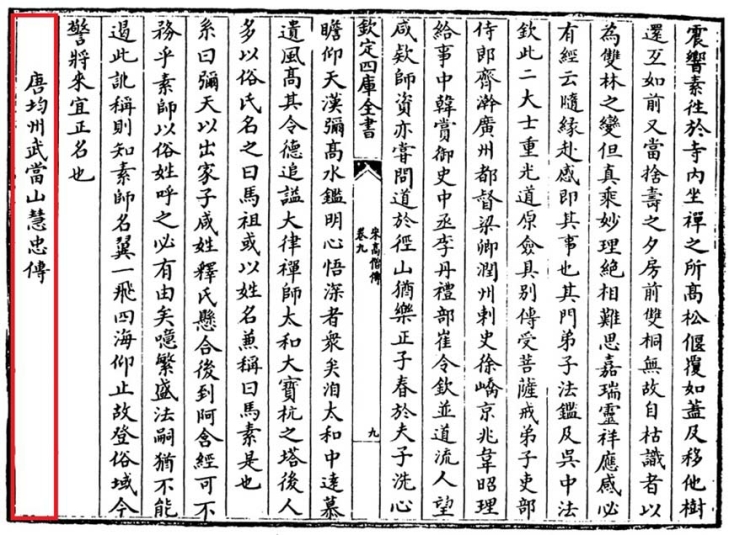 震響素往於寺內坐禪之所高松偃覆如蓋及移他樹
還互如前又當捨壽之夕房前雙桐無故自枯識者以
為雙林之變但真乘妙理絕相難思嘉瑞靈祥應感必
有經云隨緣赴感即其事也其門弟子法鑑及吳中法
欽此二大士重光道原僉具別傳受菩薩戒弟子吏部
侍郎齊澣廣州都督梁卿潤州刺史徐嶠京兆韋昭理
給事中韓賞御史中丞李丹禮部崔令欽並道流人望
咸欵師資亦嘗問道於徑山猶樂正子春於夫子洗心
欽定四庫全書
宋高僧傳
卷九
九
瞻仰天漢彌高水鑑明心悟深者衆矣洎太和中達慕
遺風高其令德追謚大律禪師太和大寶杭之塔後人
多以俗氏名之曰馬祖或以姓名兼稱曰馬素是也
系曰彌天以出家子咸姓釋氏懸合後到阿含經可不
務乎素師以俗姓呼之必有由矣噫繁盛法嗣猶不能
遏此訛稱則知素師名翼一飛四海仰止故登俗域今
警將來宜正名也
唐均州武當山慧忠傳